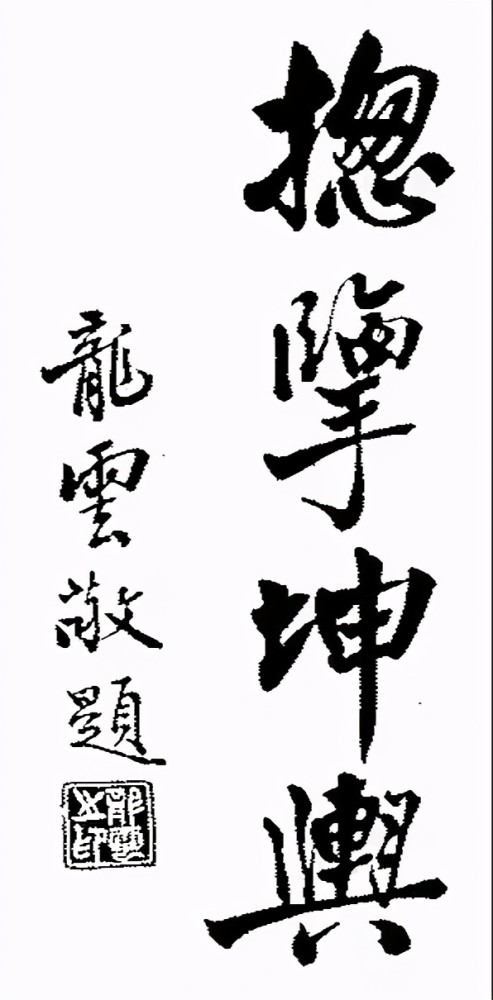 摠擥坤輿
龍雲敬題
龍雲之印